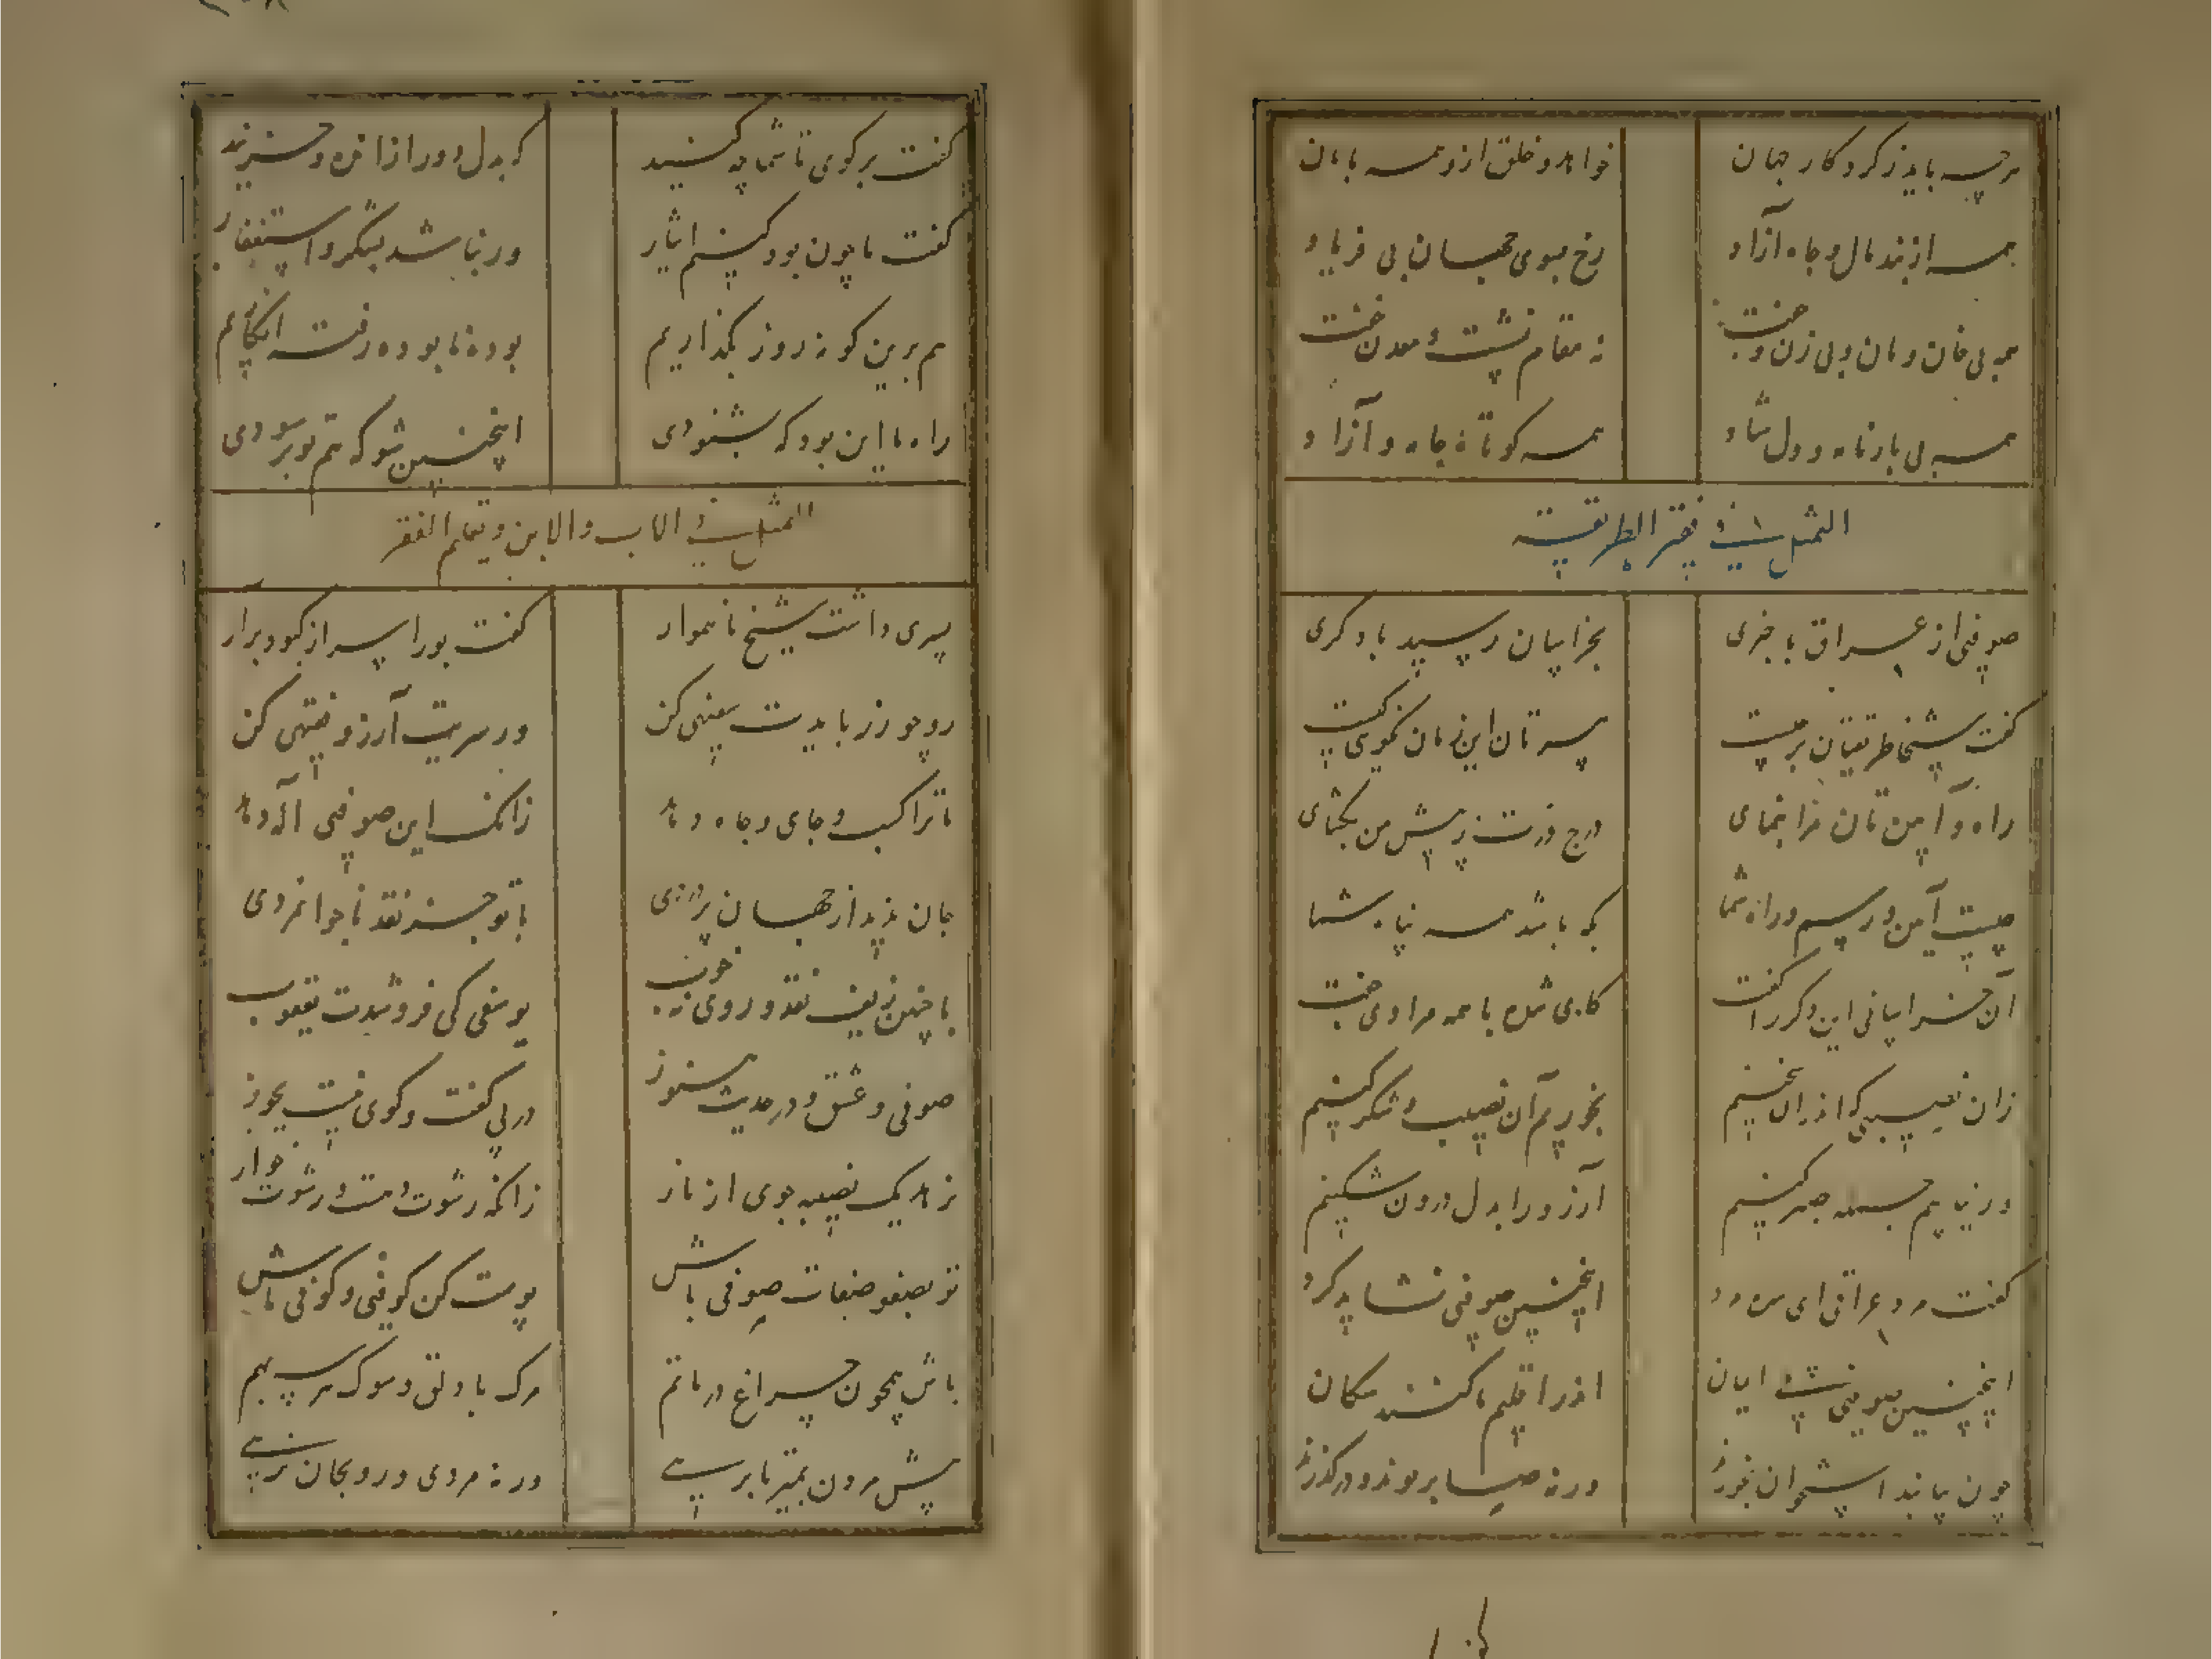 هرچه باید ز کردکار جهان
خواهد و خلق ازو همه بامان
همه از بند مال و جاه آزاد
رخ بسوی جهان بی فریاد
همه بی خان و مان و بی زن و جفت
نه مقام نشست و معدن خفت
همه بی بارنامه و دل شاد
همه کوتاه جامه و آزاد
التمثیل فی فقر الطریقة
صوفیی از عراق باخبری
بخراسان رسید با دکری
کفت شیخا طریقتان بر چیست
پیرتان این زمان بکوی کیست
راه و آیین تان مرا بنمای
درج درت ز پیش من بکشای
چیست آیین و رسم و راه شما
که باشد همه پناه شما
آن خراسانی این دکر را کفت
کای شده با همه مرادی جفت
زان نصیبی که اندران سخنیم
بخوریم آن نصیب و شکر کنیم
ور نیابیم جمله صبر کنیم
آرزو را بدل درون شکنیم
کفت مرد عراقی ای سره مرد
اینچنین صوفیی نشاید کرد
اینچنین صوفیی بی ایمان
اندر اقلیم ما کنند سکان
چون بیابند استخوان بخورند
ورنه صبر برند و درکذرند
کفت برکوی تا شما چه کنید
که بدل دور از انده و حزنید
کفت ما چون بود کنیم ایثار
ور نباشد بشکر و استغفار
هم برین کونه روز بکذاریم
بوده نابوده رفته انکاریم
راه ما این بود که بشنودی
اینچنین شو که هم تو برسودی
التمثیل فی الاب والابن وتعلیم الفقر
پسری داشت شیخ ناهموار
کفت بورا پسر از کبود برار
رو چو زر بایدت سفیهی کن
ور سریت آرزو فقیهی کن
تا ترا کسب و جای و جاه دهد
زانک این صوفیی آله دهد
جان نخرد از جهان بردردی
با تو جز نقد ناجوانمردی
با چنین زیف نقد و روی نه خوب
یوسفی کی فروشدت یعقوب
صوفی و عشق و در حدیث هنوز
درپی کفت و کوی نیست یجوز
زهد یک نصیبه جوی از ناز
زانکه رشوت دهست و رشوت خوار
تو بصفو صفات صوفی باش
پوست کن کوفیی و کوفی باش
باش همچون چراغ در ماتم
مرک با دلق و سوک سر بهم
پیش مردن بمیر تا برهی
ورنه مردی درو بجان نرهی